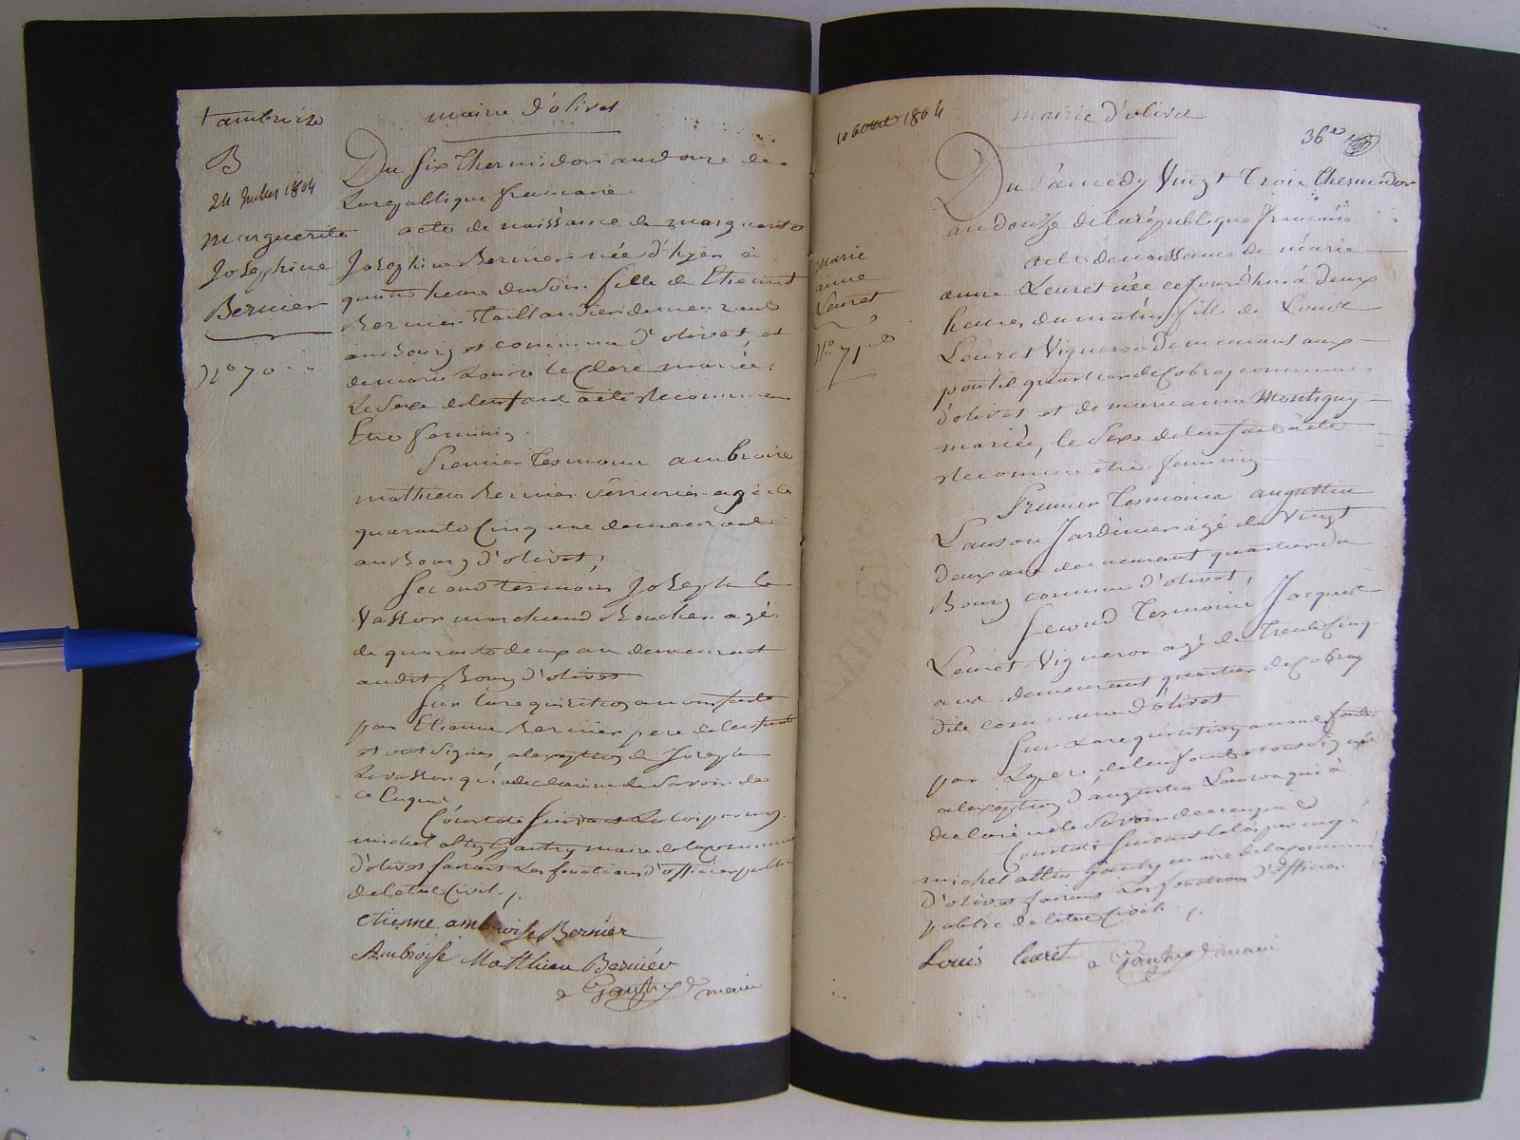 t ambroise
B
24 Juillet 1804
marguerite
Josephine
Bernier
N.o 70
mairie d'olivet
Du six Thermidor an douze de
La republique francaise
acte de naissance de marguerite
Josephine Bernier née d'hyer à
quatre heures du soir fille de Etienne
Bernier Taillandier demeurant
au Bourg et commune d'olivet, et
de marie Louise le Clere mariés;
Le sexe de lenfant a été Reconnu
Etre feminin.
Premier Tesmoin ambroise
mathieu Bernier serrurier agé de
quarante Cinq ans demeurant
au Bourg d'olivet;
Second tesmoin Joseph Le
Vasson marchand Boucher agé
de quarante deux ans demeurant
audit Bourg d'olivet
Sur La requisition a nous faite
par Etienne Bernier pere de lenfant
et ont signés, a lexception de Joseph
Levasson qui a declaré ne le savoir de
ce Enquis
Constaté Suivant La loi par moy
michel altin Gautry maire de la commune
d'olivet faisant Les fonctions d'officier public
de letat Civil.
etienne ambroise Bernier
Ambroise Matthieu Bernier
Gautry maire
10 aout 1804
marie
anne
Leuret
N.o 71
mairie d'olivet
36
Du Samedy Vingt Trois Thermidor
an douze de la république francaise
acte de naissance de marie
anne Leuret née ce jourd'hui à deux
heures du matin fille de Louis
Leuret Vigneron demeurant aux
quartier de Cobray commune
d'olivet et de marie anne Montigny
mariés, le sexe de lenfant a été
Reconnu etre feminin
Premier Tesmoin augustin
Lanson Jardinier agé de Vingt
deux ans demeurant quartier du
Bourg commune d'olivet;
Second Tesmoin Jacques
Leuret Vigneron agé de Trente Cinq
ans demeurant quartier de Cobray
dite commune d'olivet
Sur La requisition a nous faite
par Le pere de lenfant
a lexception d'augustin Lanson qui à
declaré ne le savoir de ce enquis
Constaté suivant la loi par moy
michel altin Gautry maire de la commune
d'olivet faisant Les fonctions d'officier
public de letat Civil.
Louis Leuret
Gautry maire